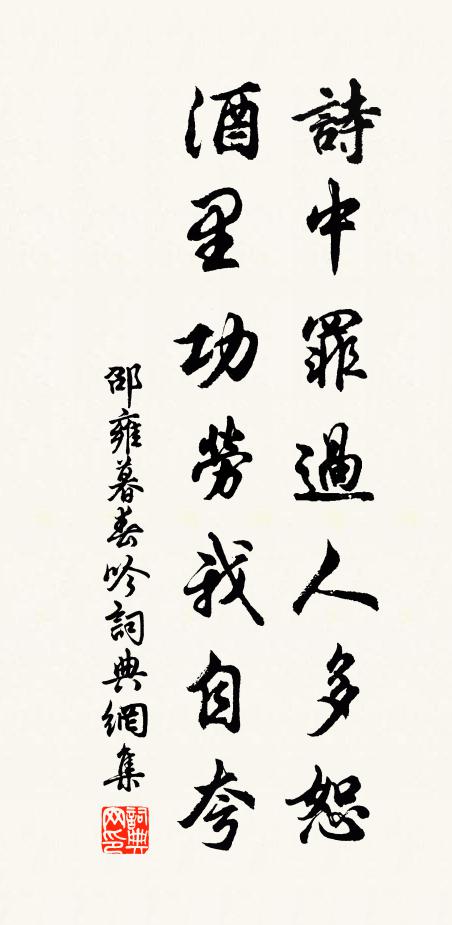 詩中罪過人多恕
酒里功勞我自夸
邵雍暮春吟詞典網集
詞典
网印